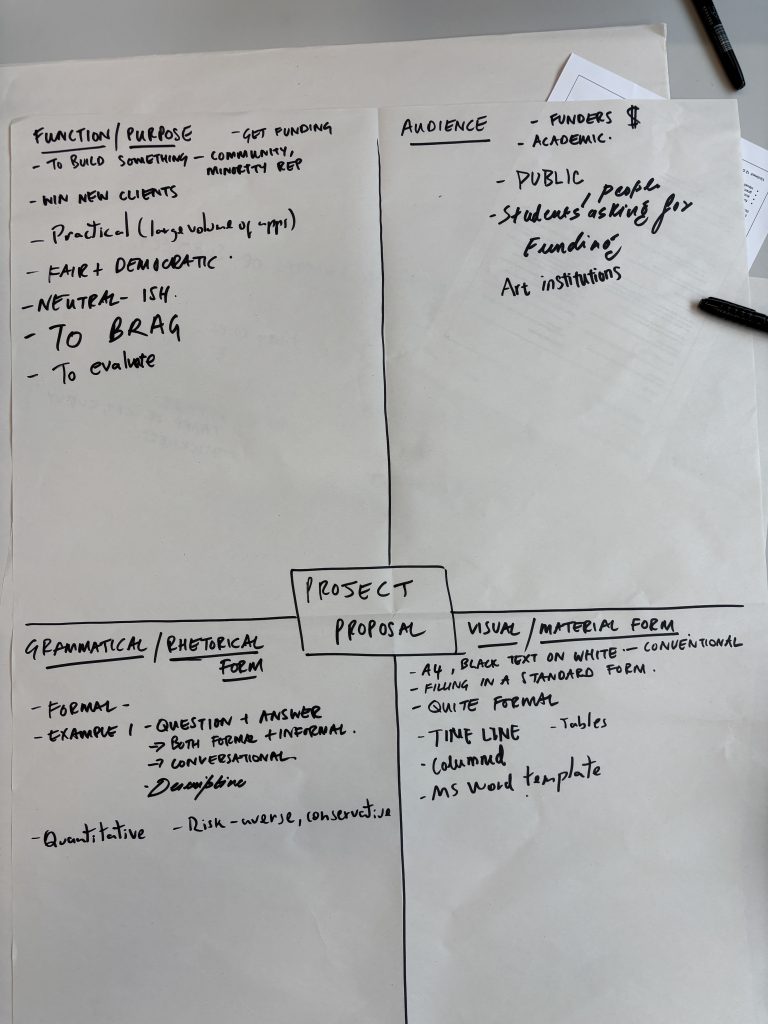 FUNCTION / PURPOSE
- GET FUNDING
- TO BUILD SOMETHING - COMMUNITY,
MINORITY REP
- WIN NEW CLIENTS
- Practical (large volume of apps)
- FAIR + DEMOCRATIC.
- NEUTRAL-ISH.
- TO BRAG
- To evaluate
AUDIENCE
- FUNDERS $
- ACADEMIC.
- PUBLIC
- Students / people
asking for
Funding
Art institutions
PROJECT
PROPOSAL
GRAMMATICAL / RHETORICAL
FORM
- FORMAL -
- EXAMPLE 1 - QUESTION + ANSWER
→ BOTH FORMAL + INFORMAL.
→ CONVERSATIONAL
- Descriptive
- Quantitative
- Risk-averse, conservative
VISUAL / MATERIAL FORM
- A4, BLACK TEXT ON WHITE - CONVENTIONAL
- FILLING IN A STANDARD FORM.
- QUITE FORMAL
- TIME LINE
- Tables
- Columned
- MS Word template